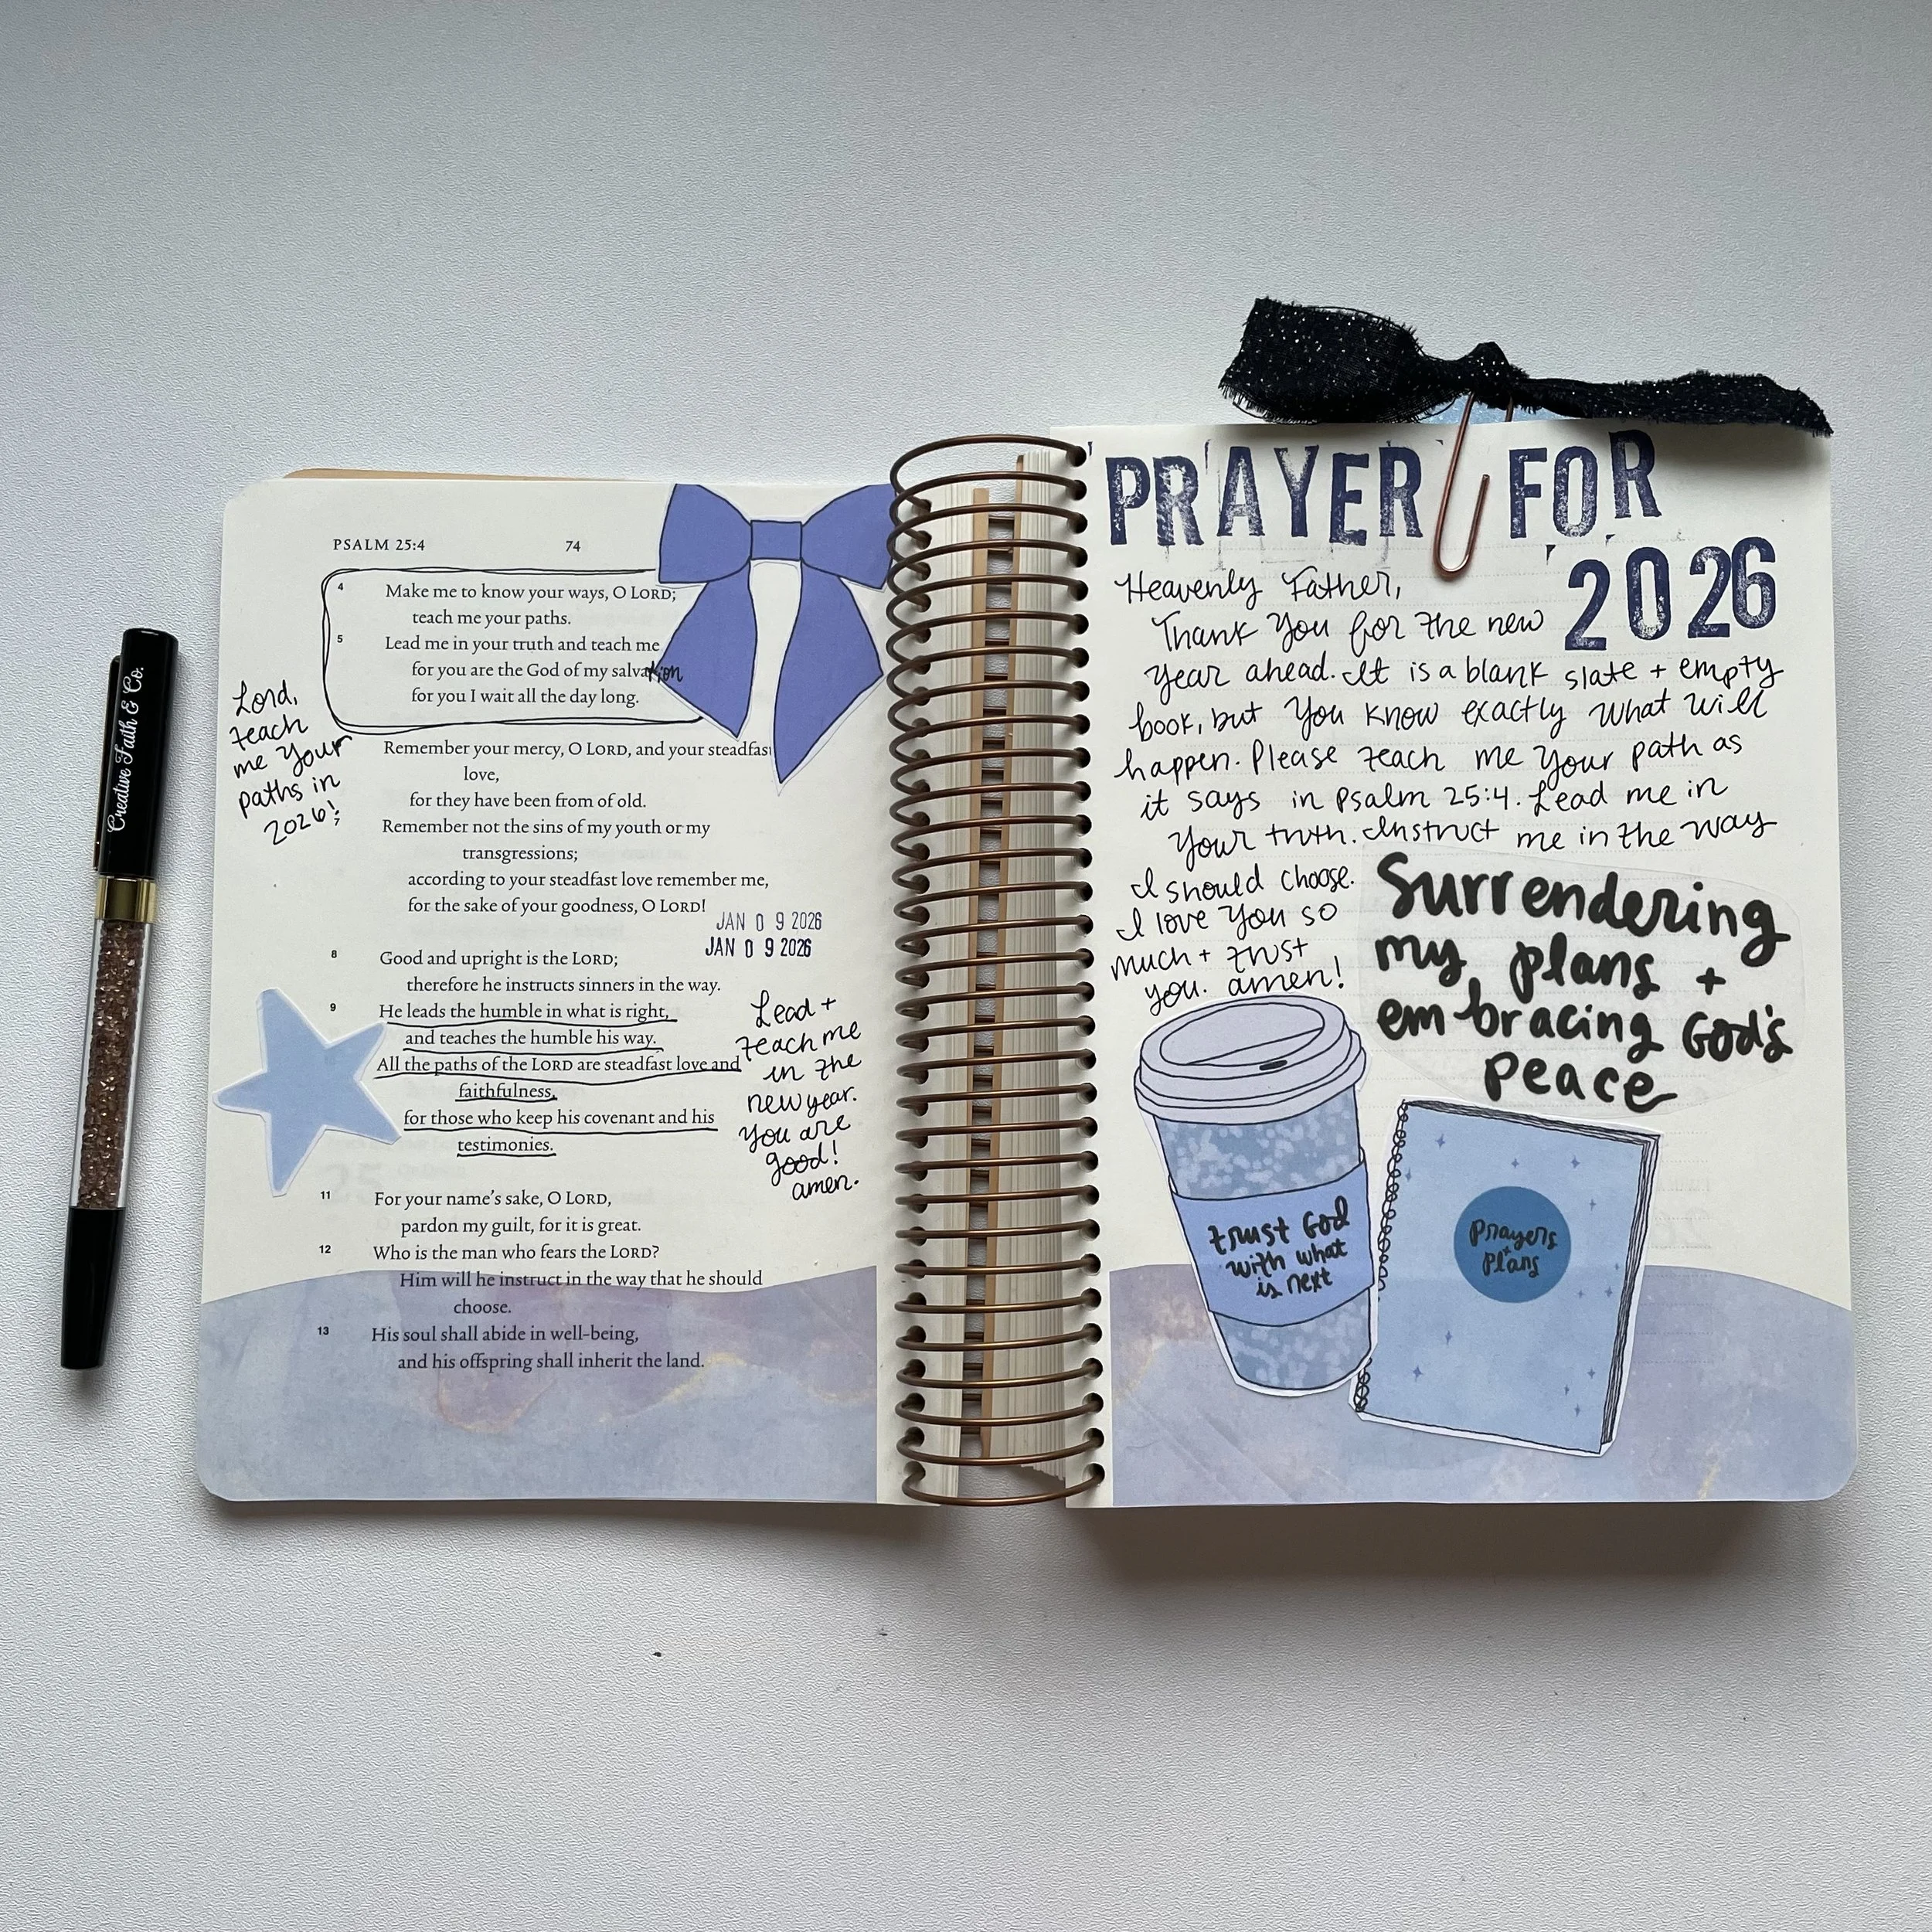 Creative Faith & Co.
PSALM 25:4
74
4 Make me to know your ways, O LORD;
teach me your paths.
5 Lead me in your truth and teach me
for you are the God of my salvation
for you I wait all the day long.
Lord,
teach
me Your
paths in
2026!
Remember your mercy, O LORD, and your steadfast
love,
for they have been from of old.
7 Remember not the sins of my youth or my
transgressions;
according to your steadfast love remember me,
for the sake of your goodness, O LORD!
JAN 0 9 2026
JAN 0 9 2026
8 Good and upright is the LORD;
therefore he instructs sinners in the way.
9 He leads the humble in what is right,
and teaches the humble his way.
All the paths of the LORD are steadfast love and
faithfulness,
for those who keep his covenant and his
testimonies.
Lead +
teach me
in the
new year.
You are
good!
amen.
11 For your name's sake, O LORD,
pardon my guilt, for it is great.
12 Who is the man who fears the LORD?
Him will he instruct in the way that he should
choose.
13 His soul shall abide in well-being,
and his offspring shall inherit the land.
PRAYER FOR
2026
Heavenly Father,
Thank You for the new
year ahead. It is a blank slate + empty
book, but You know exactly what will
happen. Please teach me Your path as
it says in Psalm 25:4. Lead me in
Your truth. Instruct me in the way
I should choose.
I love You so
much + trust
you. amen!
Surrendering
my plans +
embracing God's
peace
trust God
with what
is next
Prayers
+
plans